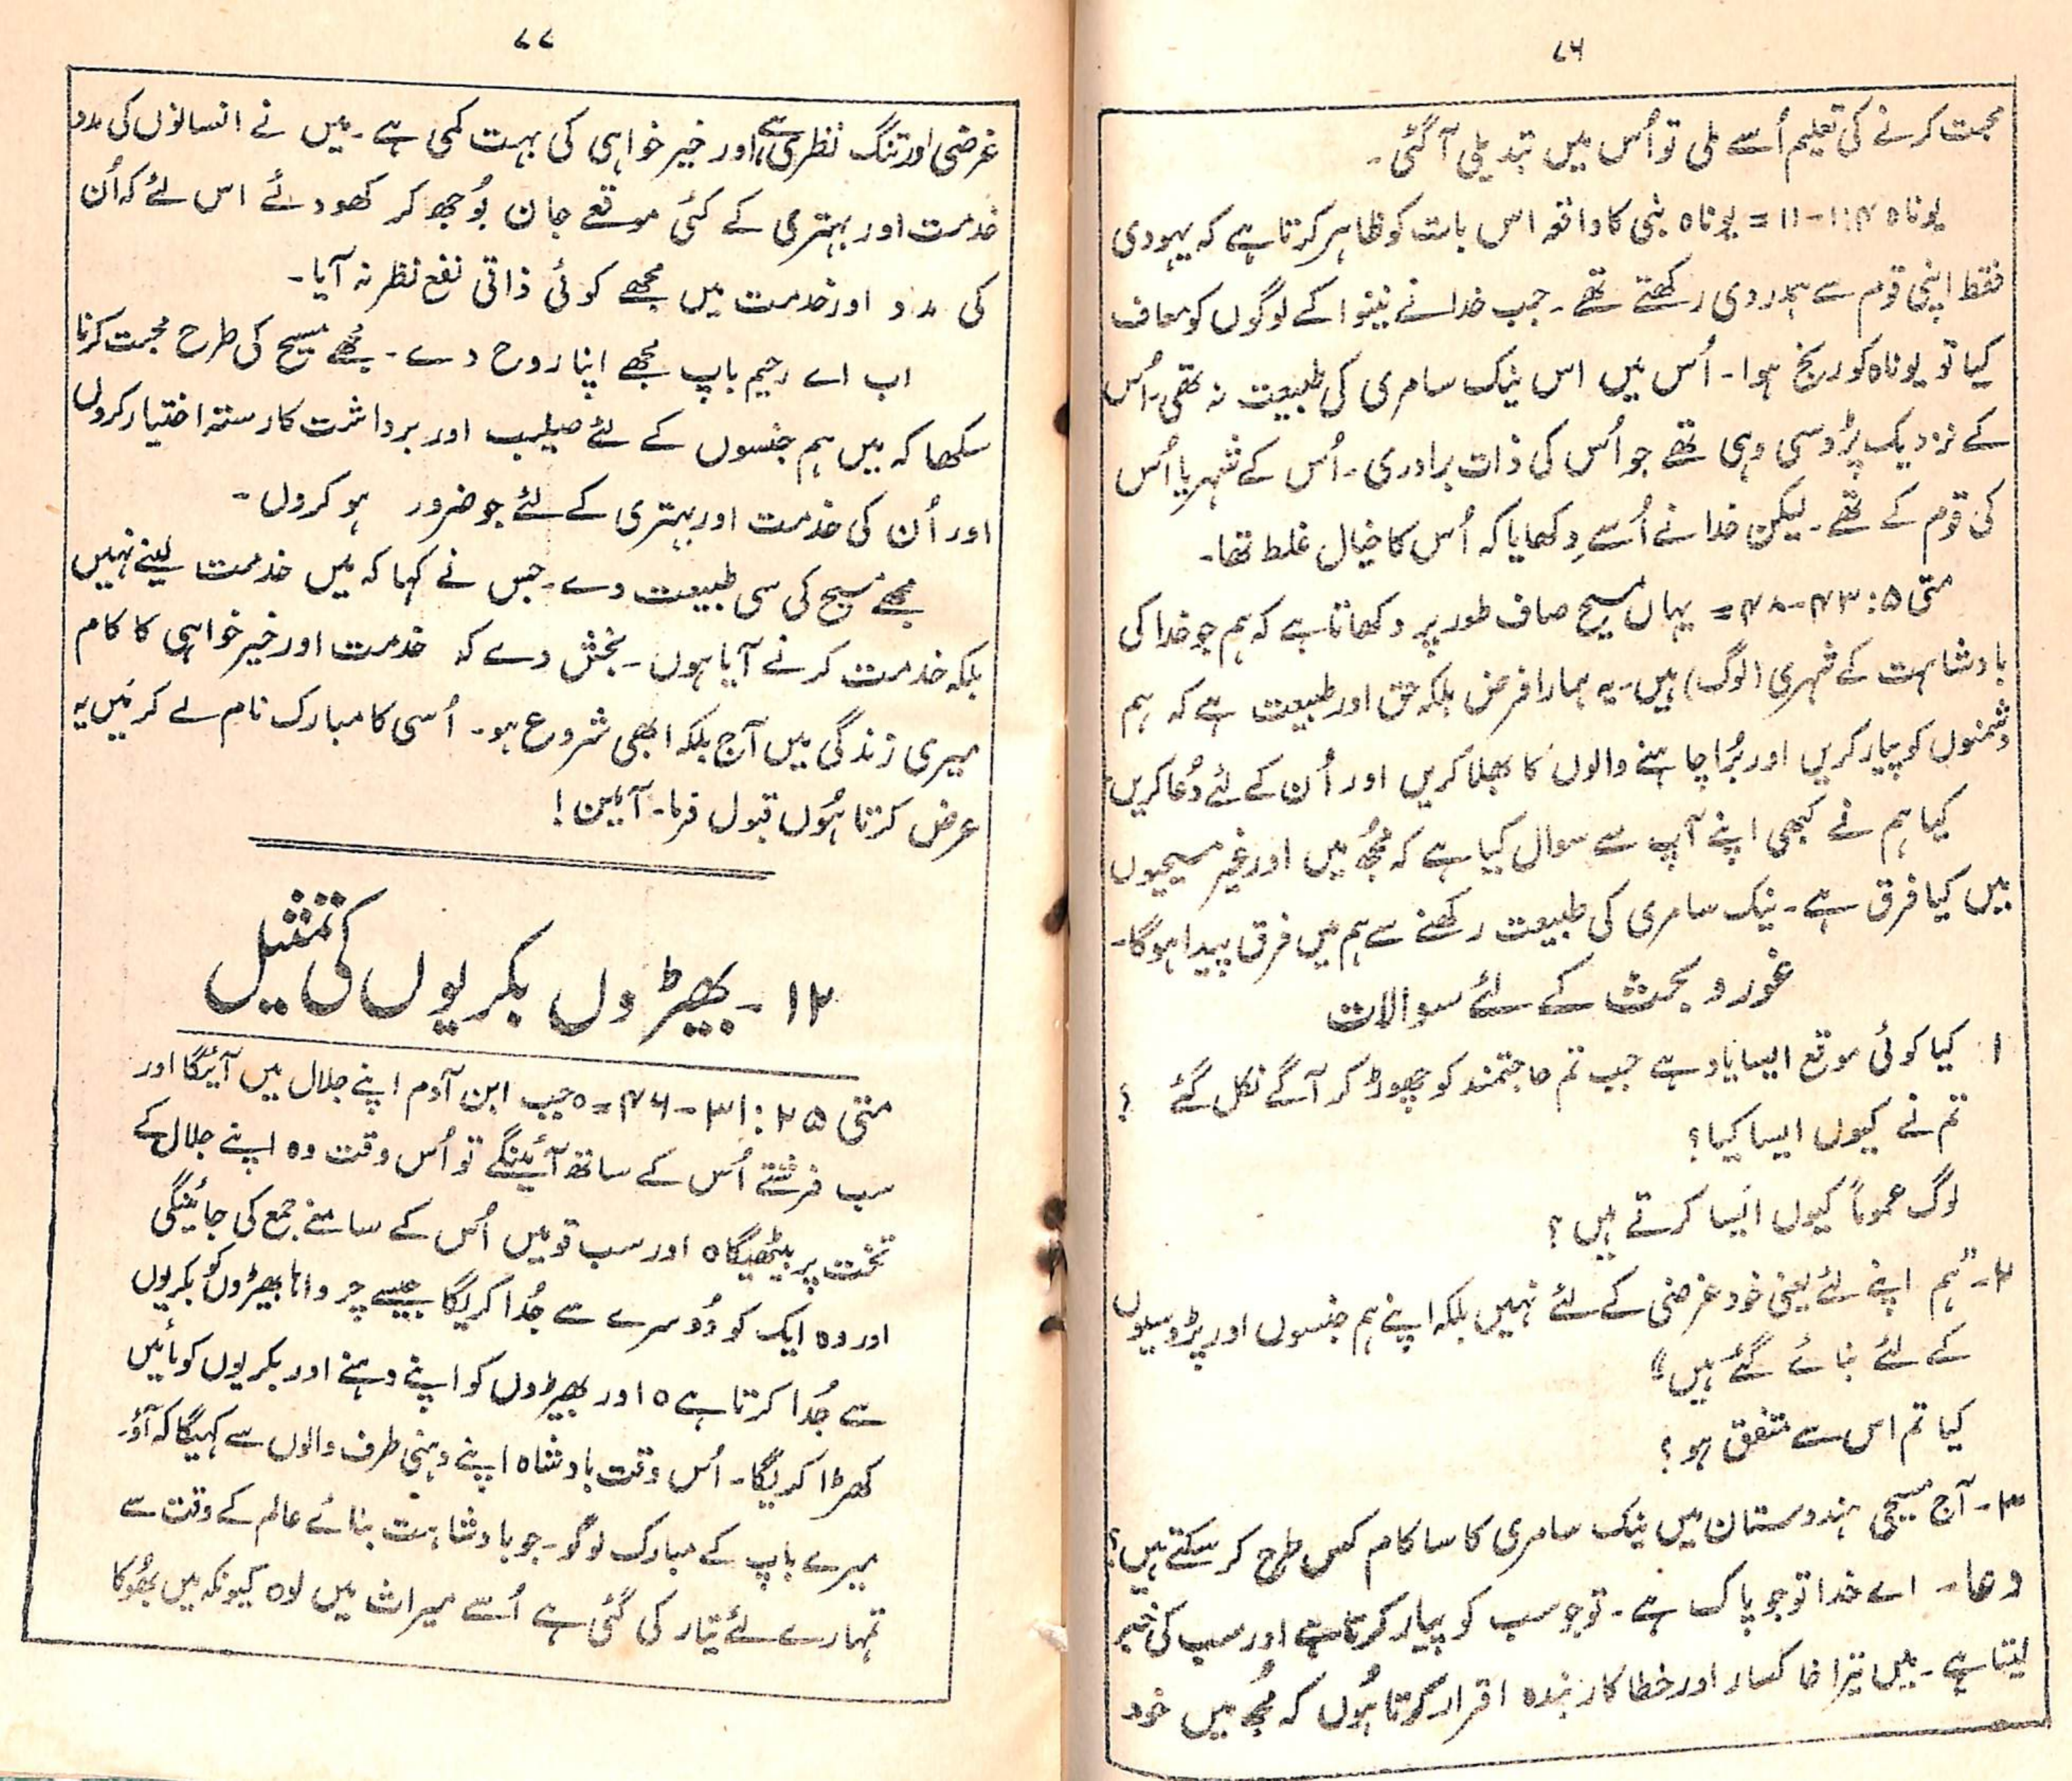 ۷۶
محبت کرنے کی تعلیم اُسے ملی تو اُس میں تبدیلی آگئی۔
یوناہ ۴:۱-۱۱ = یوناہ نبی کا واقعہ اس بات کو ظاہر کرتا ہے کہ یہودی
فقط اپنی قوم سے ہمدردی رکھتے تھے۔ جب خدا نے نینوا کے لوگوں کو معاف
کیا تو یوناہ کو رنج ہوا۔ اُس میں اس نیک سامری کی طبیعت نہ تھی۔ اُس
کے نزدیک پڑوسی وہی تھے جو اُس کی ذات برادری۔ اُس کے شہر یا اُس
کی قوم کے تھے۔ لیکن خدا نے اُسے دِکھایا کہ اُس کا خیال غلط تھا۔
متی ۵:۴۳-۴۸ = یہاں مسیح صاف طور پر دکھاتا ہے کہ ہم جو خدا کی
بادشاہت کے شہری (لوگ) ہیں۔ یہ ہمارا فرض بلکہ حق اور طبیعت ہے کہ ہم
دشمنوں کو پیار کریں اور بُرا چاہنے والوں کا بھلا کریں اور اُن کے لئے دُعا کریں
کیا ہم نے کبھی اپنے آپ سے سوال کیا ہے کہ مُجھ میں اور غیر مسیحیوں
میں کیا فرق ہے۔ نیک سامری کی طبیعت رکھنے سے ہم میں فرق پیدا ہوگا۔
غور و بحث کے لئے سوالات
۱۔ کیا کوئی موقع ایسا یاد ہے جب تم حاجتمند کو چھوڑ کر آگے نکل گئے ؟
تم نے کیوں ایسا کیا؟
لوگ عموماً کیوں ایسا کرتے ہیں ؟
۲۔ "ہم اپنے لئے یعنی خود غرضی کے لئے نہیں بلکہ اپنے ہم جنسوں اور پڑوسیوں
کے لئے بنائے گئے ہیں"
کیا تم اس سے متفق ہو ؟
۳۔ آج مسیحی ہندوستان میں نیک سامری کا سا کام کس طرح کر سکتے ہیں؟
دعا۔ اے خدا تو جو پاک ہے۔ تو جو سب کو پیار کرتا ہے اور سب کی خبر
لیتا ہے۔ میں تیرا خاکسار اور خطا کار بندہ اقرار کرتا ہُوں کہ مُجھ میں خود
۷۷
غرضی اور تنگ نظری ہے اور خیر خواہی کی بہت کمی ہے۔ میں نے انسانوں کی مدد
خدمت اور بہتری کے کئی موقعے جان بُوجھ کر کھو دئے اس لئے کہ اُن
کی مدد اور خدمت میں مجھے کوئی ذاتی نفع نظر نہ آیا۔
اب اے رحیم باپ مجھے اپنا روح دے۔ مجھے مسیح کی طرح محبت کرنا
سکھا کہ میں ہم جنسوں کے لئے صلیب اور برداشت کا رستہ اختیار کروں
اور اُن کی خدمت اور بہتری کے لئے جو ضرور ہو کروں۔
مجھے مسیح کی سی طبیعت دے۔ جس نے کہا کہ میں خدمت لینے نہیں
بلکہ خدمت کرنے آیا ہوں۔ بخش دے کہ خدمت اور خیر خواہی کا کام
میری زندگی میں آج بلکہ ابھی شروع ہو۔ اُسی کا مبارک نام لے کر میں یہ
عرض کرتا ہُوں قبول فرما۔ آمین!
۱۲۔ بھیڑوں بکریوں کی تمثیل
متی ۲۵:۳۱-۴۶ = ٥ جب ابن آدم اپنے جلال میں آئیگا اور
سب فرشتے اُس کے ساتھ آئینگے تو اُس وقت وہ اپنے جلال کے
تخت پر بیٹھیگا ٥ اور سب قومیں اُس کے سامنے جمع کی جائینگی
اور وہ ایک کو دُوسرے سے جُدا کریگا جیسے چرواہا بھیڑوں کو بکریوں
سے جُدا کرتا ہے ٥ اور بھیڑوں کو اپنے دہنے اور بکریوں کو بائیں
کھڑا کریگا۔ اُس وقت بادشاہ اپنے دہنی طرف والوں سے کہیگا کہ آؤ۔
میرے باپ کے مبارک لوگو۔ جو بادشاہت بنائے عالم کے وقت سے
تمہارے لئے تیار کی گئی ہے اُسے میراث میں لو ٥ کیونکہ میں بھُوکا